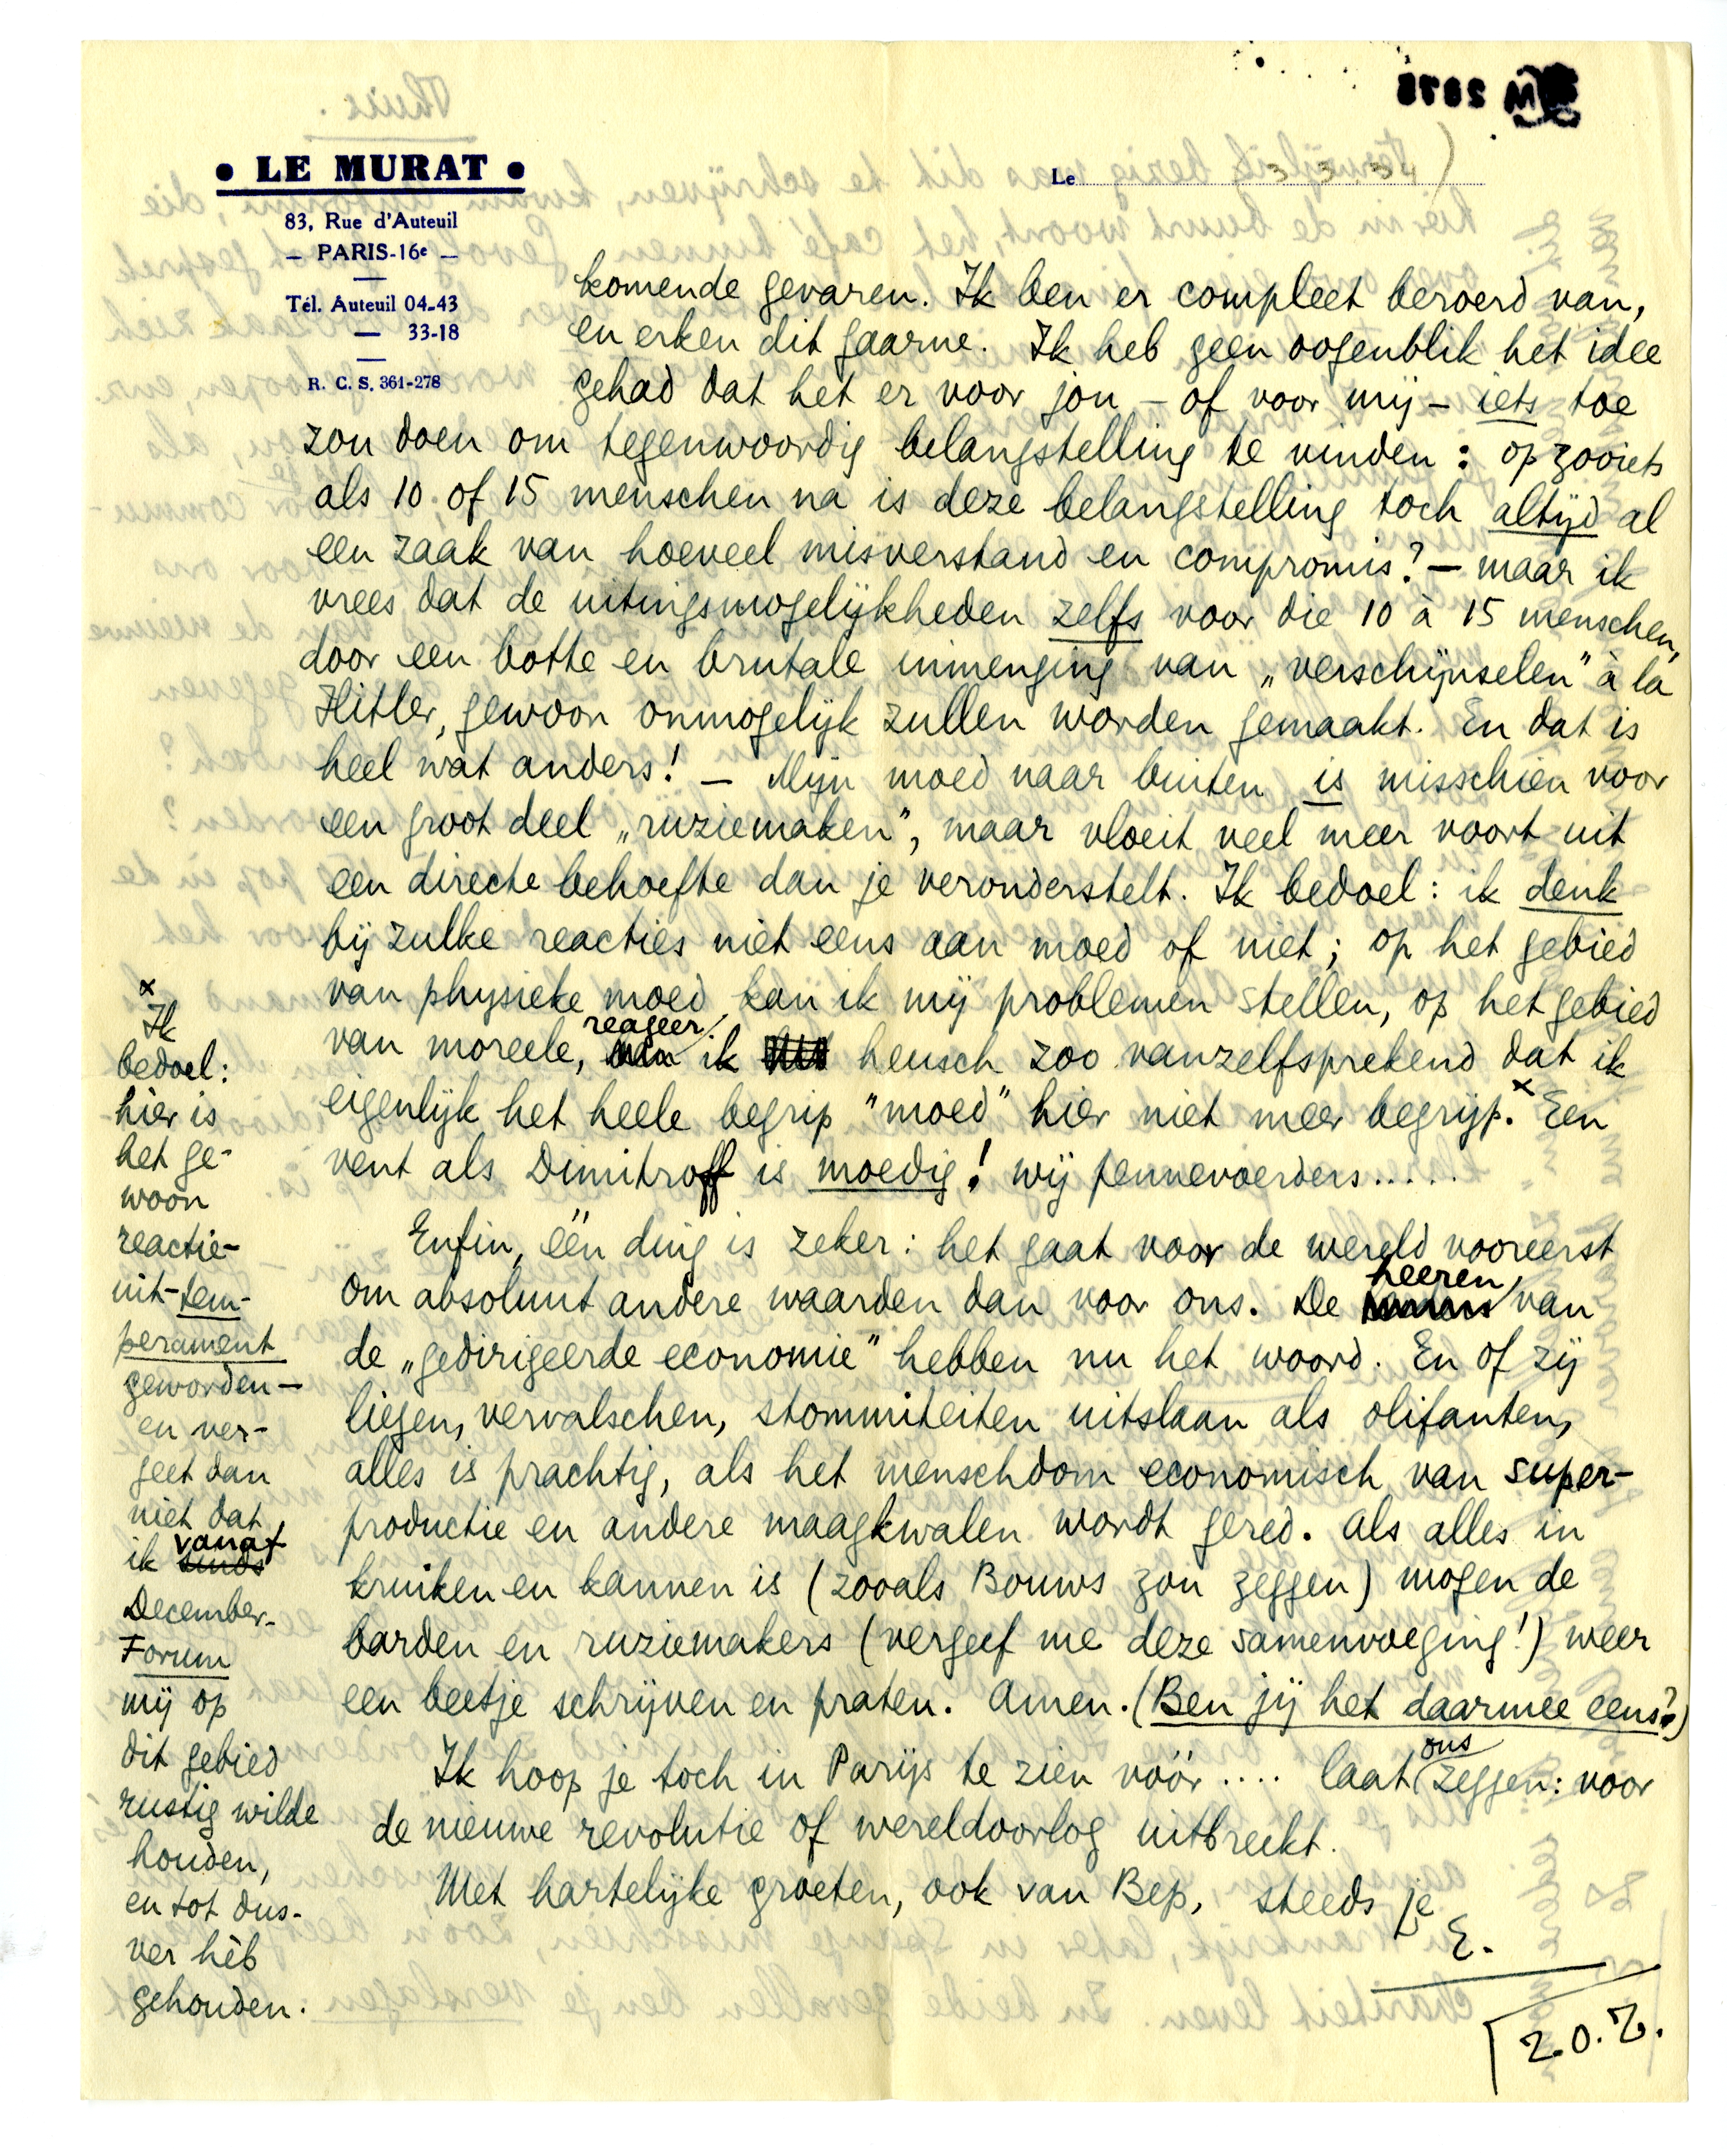 • LE MURAT •
83, Rue d'Auteuil
— PARIS-16e —
Tél. Auteuil 04-43
— 33-18
R. C. S. 361-278
Le 3 3 34
komende gevaren. Ik ben er compleet beroerd van,
en erken dit gaarne. Ik heb geen oogenblik het idee
gehad dat het er voor jou – of voor mij – iets toe
zou doen om tegenwoordig belangstelling te vinden: op zooiets
als 10 of 15 menschen na is deze belangstelling toch altijd al
een zaak van hoeveel misverstand en compromis? – maar ik
vrees dat de uitingsmogelijkheden zelfs voor die 10 à 15 menschen,
door een botte en brutale inmenging van „verschijnselen” à la
Hitler, gewoon onmogelijk zullen worden gemaakt. En dat is
heel wat anders! – Mijn moed naar buiten is misschien voor
een groot deel „ruziemaken”, maar vloeit veel meer voort uit
een directe behoefte dan je veronderstelt. Ik bedoel: ik denk
bij zulke reacties niet eens aan moed of niet; op het gebied
van physieke moed kan ik mij problemen stellen, op het gebied
van moreele, reageer ik heusch zoo vanzelfsprekend dat ik
eigenlijk het heele begrip "moed" hier niet meer begrijp.x Een
vent als Dimitroff is moedig! wij pennevoerders.....
Enfin, één ding is zeker: het gaat voor de wereld vooreerst
om absoluut andere waarden dan voor ons. De heeren van
de „gedirigeerde economie” hebben nu het woord. En of zij
liegen, vervalschen, stommiteiten uitslaan als olifanten,
alles is prachtig, als het menschdom economisch van super-
productie en andere maagkwalen wordt gered. Als alles in
kruiken en kannen is (zooals Bouws zou zeggen) mogen de
barden en ruziemakers (vergeef me deze samenvoeging!) weer
een beetje schrijven en praten. Amen. (Ben jij het daarmee eens?)
Ik hoop je toch in Parijs te zien vóór .... laat ons zeggen: voor
de nieuwe revolutie of wereldoorlog uitbreekt.
Met hartelijke groeten, ook van Bep, steeds je
E.
Z.O.Z.
x
Ik
bedoel:
hier is
het ge-
woon
reactie-
uit-tem-
perament
geworden –
en ver-
geet dan
niet dat
ik vanaf
December-
Forum
mij op
dit gebied
rustig wilde
houden,
en tot dus-
ver hèb
gehouden.